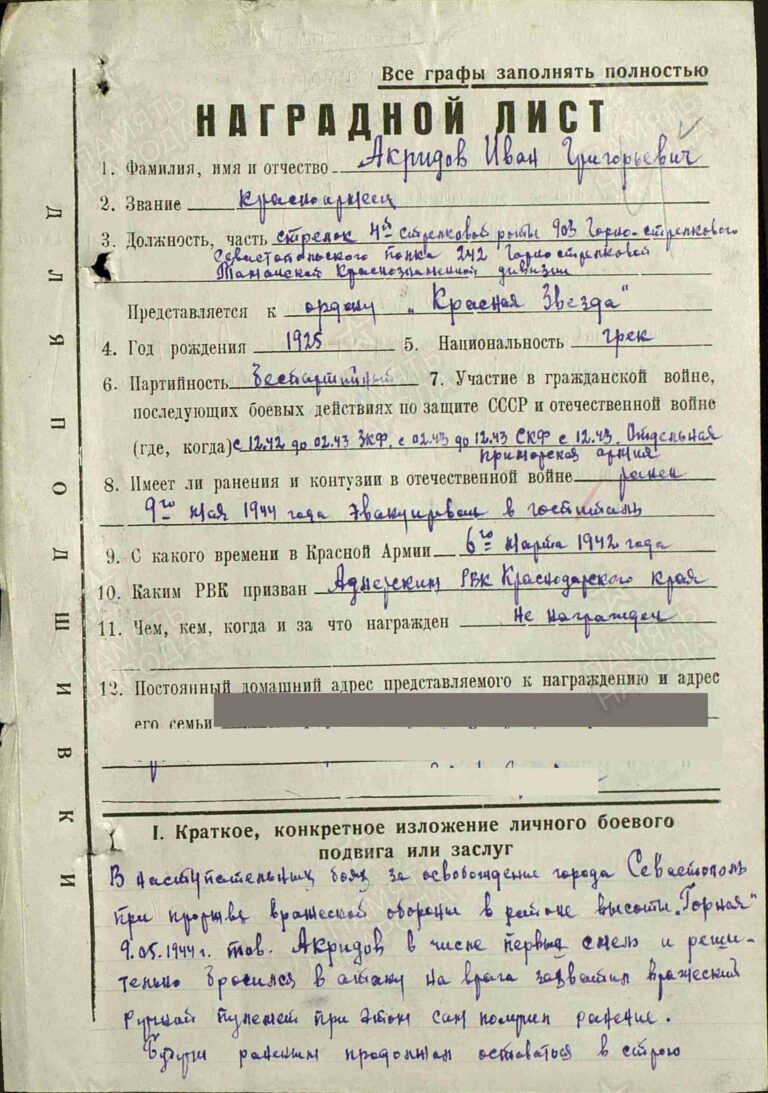 Все графы заполнять полностью
НАГРАДНОЙ ЛИСТ
1. Фамилия, имя и отчество Акридов Иван Григорьевич
2. Звание Красноармеец
3. Должность, часть стрелок 4й стрелковой роты 903 Горно-стрелкового
Севастопольского полка 242 Горно стрелковой
Таманской Краснознаменной дивизии
Представляется к ордену „Красная Звезда"
4. Год рождения 1925 5. Национальность грек
6. Партийность беспартийный 7. Участие в гражданской войне,
последующих боевых действиях по защите СССР и отечественной войне
(где, когда) с 12.42 до 02.43 ЗКФ. с 02.43 до 12.43 СКФ с 12.43. Отдельная
Приморская армия
8. Имеет ли ранения и контузии в отечественной войне ранен
9го мая 1944 года Эвакуирован в госпиталь
9. С какого времени в Красной Армии 6го марта 1942 года
10. Каким РВК призван Адлерским РВК Краснодарского края
11. Чем, кем, когда и за что награжден не награжден
12. Постоянный домашний адрес представляемого к награждению и адрес
его семьи
I. Краткое, конкретное изложение личного боевого
подвига или заслуг
В наступательных боях за освобождение города Севастополь
при прорыве вражеской обороны в районе высоты „Горная"
9.05.1944г. тов. Акридов в числе первых смело и реши-
тельно бросился в атаку на врага захватил вражеский
ручной пулемет при этом сам получил ранение.
Будучи раненым продолжал оставаться в строю
ДЛЯ ПОДШИВКИ
ПАМЯТЬ НАРОДА